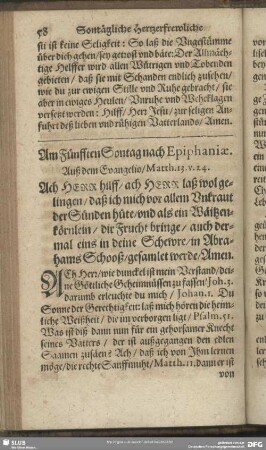 58 Sontägliche Hertzerfrewliche
sti ist keine Seligkeit: So laß die Vngestümme
über dich gehen/sey getrost vnd bäte: Der Allmäch-
tige Helffer wird allen Wütrigen vnd Tobenden
gebieten/daß sie mit Schanden endlich zusehen/
wie du zur ewigen Stille vnd Ruhe gebracht/sie
aber in ewiges Heulen/Vnruhe vnd Wehklagen
versetzet werden: Hilff/Herr Jesu/zur seligen An-
fuhrt deß lieben vnd rühigen Vatterlands/Amen.
Am Fünfften Sontag nach Epiphaniæ.
Auß dem Evangelio/Matth.13. v.24.
Ach HERR hilff/ach HERR laß wol ge-
lingen/daß ich mich vor allem Vnkraut
der Sünden hüte/vnd als ein Wäitzen-
körnlein/die Frucht bringe/auch der-
mal eins in deine Schewre/in Abra-
hams Schooß/gesamlet werde/Amen.
ACh Herr/wie dunckel ist mein Verstand/dei-
ne Göttliche Geheimnüssen zu fassen/Joh.3.
darumb erleuchte du mich/Johan.1. Du
Sonne der Gerechtigkeit: laß mich hören die heim-
liche Weißheit/die im verborgen ligt/Psalm.51.
Was ist diß dann nun für ein gehorsamer Knecht
seines Vatters/der ist außgegangen den edlen
Saamen zusäen? Ach/daß ich von Ihm lernen
möge/die rechte Sanfftmuht/Matth.11. dann er ist
von
SLUB
DFG